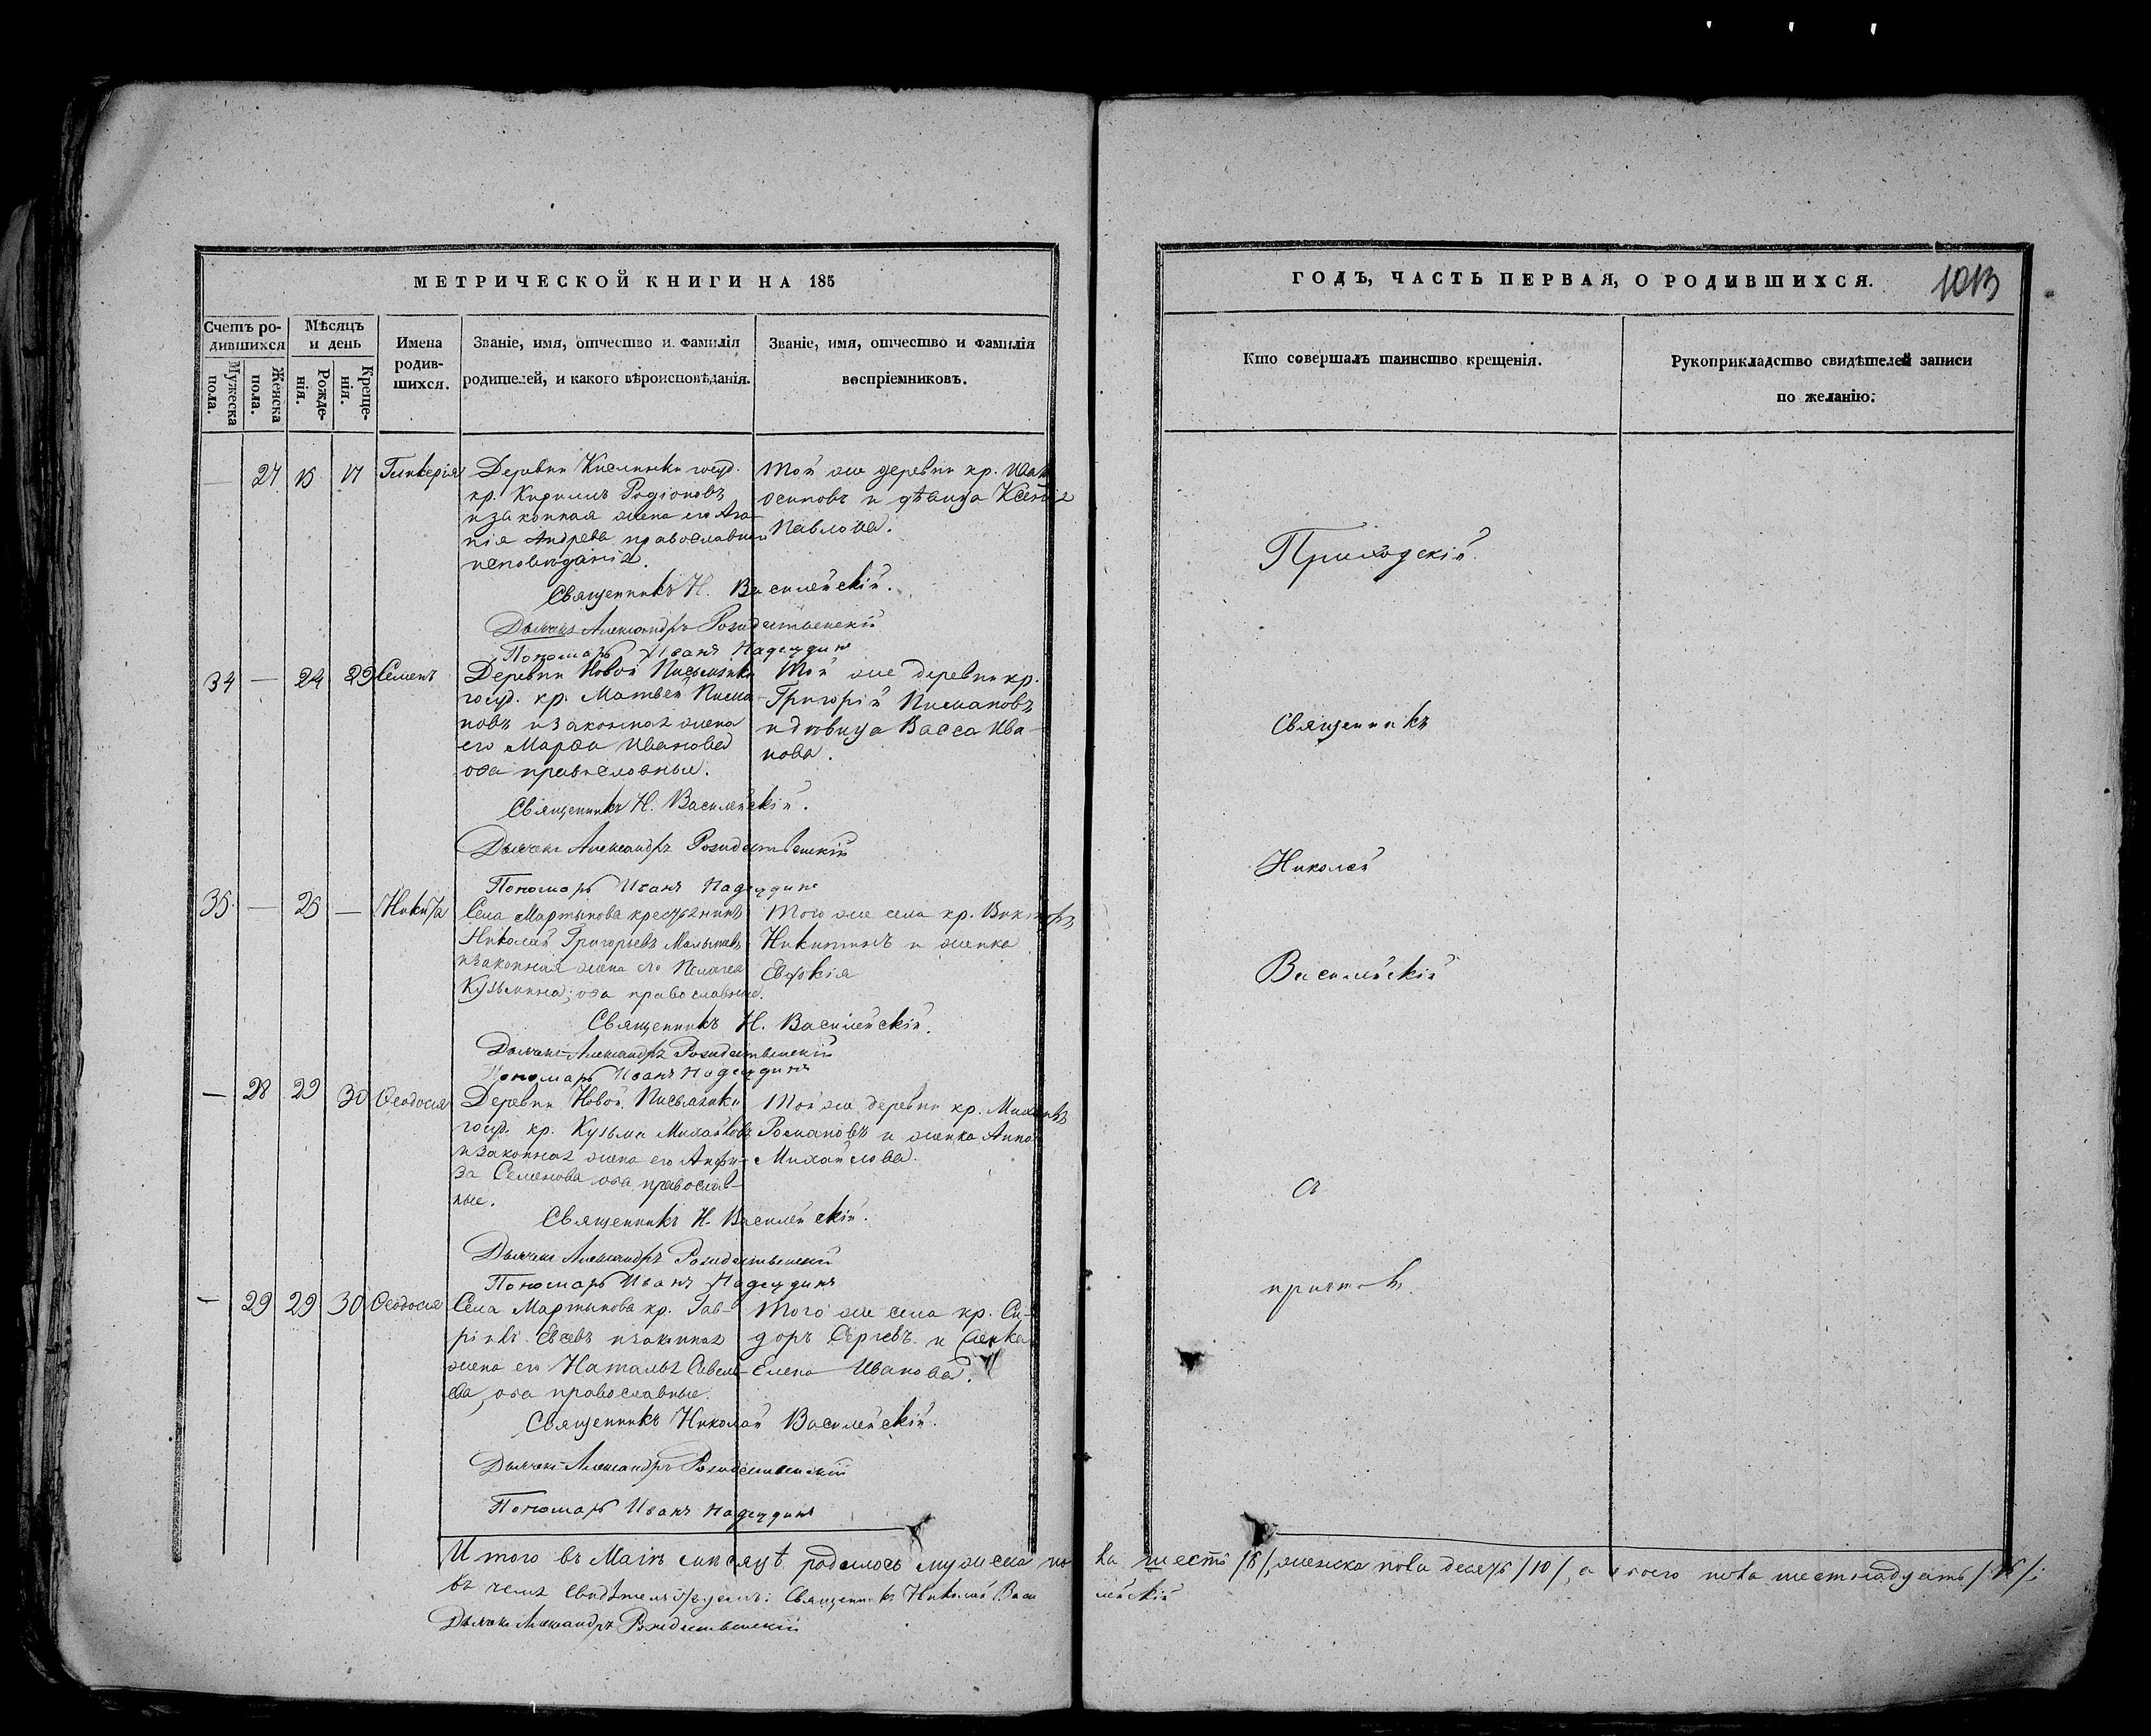 МЕТРИЧЕСКОЙ КНИГИ НА 185
Счетъ ро-
дившихся
Мужеска пола.
Женска пола.
Мѣсяцъ
и день
Рожде-
нія.
Креще-
нія.
Имена
родив-
шихся.
Званіе, имя, отчество и фамилія
родителей, и какого вѣроисповѣданія.
Званіе, имя, отчество и фамилія
воспріемниковъ.
— 27 15 17 Гликерія
Деревни госуд.
кр. Кирилъ Родіоновъ
и законная жена его Ага-
пія Андрева православнаго
исповѣданія.
Той же деревни кр. Иванъ
Осиповъ и дѣвица Ксенія
Павлова.
Священникъ Н. Василейскій.
Дьячекъ Александръ Рождественскій
Пономарь Иванъ Надеждинъ
34 — 24 29 Семенъ
Деревни Новой Письмянки
госуд. кр. Матвей Писма-
новъ и законная жена
его Марѳа Иванова
оба православные.
Той же деревни кр.
Григорій Писмановъ
и дѣвица Васса Ива-
нова.
Священникъ Н. Василейскій.
Дьячекъ Александръ Рождественскій
Пономарь Иванъ Надеждинъ
35 — 26 — Никита
Села Мартынова крестьянинъ
Николай Григорьевъ
и законная жена его Пелагея
Кузьмина; оба православные.
Того же села кр. Викторъ
Никитинъ и женка
Евдокія
Священникъ Н. Василейскій.
Дьячекъ Александръ Рождественскій
Пономарь Иванъ Надеждинъ
— 28 29 30 Ѳеодосія
Деревни Новой Письмянки
госуд. кр. Кузьма Михайловъ
и законная жена его Анфи-
за Семенова оба православ-
ные.
Той же деревни кр.
Романовъ и женка Анна
Михайлова.
Священникъ Н. Василейскій.
Дьячекъ Александръ Рождественскій
Пономарь Иванъ Надеждинъ
— 29 29 30 Ѳеодосія
Села Мартынова кр. Гав-
ріилъ Евсевъ и законная
жена его Наталья Савель-
ева, оба православные.
Того же села кр. Си-
доръ Сергѣевъ и женка
Елена Иванова.
Священникъ Николай Василейскій.
Дьячекъ Александръ Рождественскій
Пономарь Иванъ Надеждинъ
Итого въ Маіѣ мѣсяцѣ родилось мужеска по-
въ чемъ свидѣтельствуемъ: Священникъ Николай Васи
Дьячекъ Александръ Рождественскій
ГОДЪ, ЧАСТЬ ПЕРВАЯ, О РОДИВШИХСЯ.
1013
Кто совершалъ таинство крещенія.
Рукоприкладство свидѣтелей записи
по желанію.
Приходскій
Священникъ
Николай
Василейскій
съ
причтомъ.
ла шесть /6/, женска пола десять /10/, а всего пола шестнадцать /16/;
лейскій